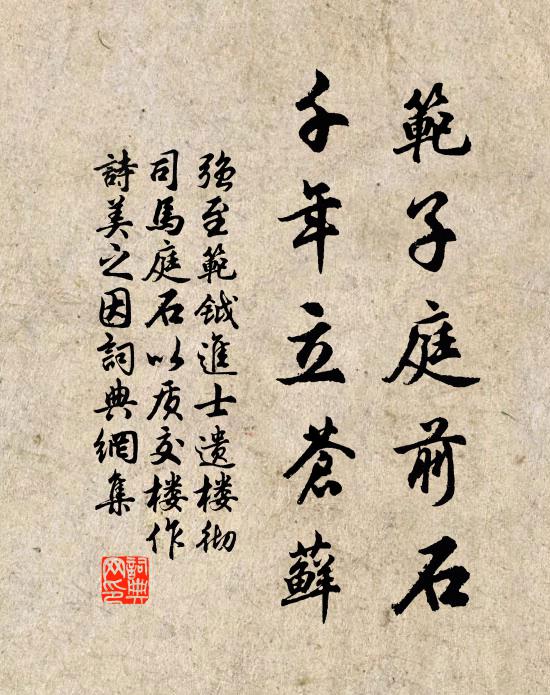 範子庭前石
千年立蒼蘚
強至範鉞進士遺楼彻
司馬庭石以质交楼作
詩美之因詞典網集
詞典
网印